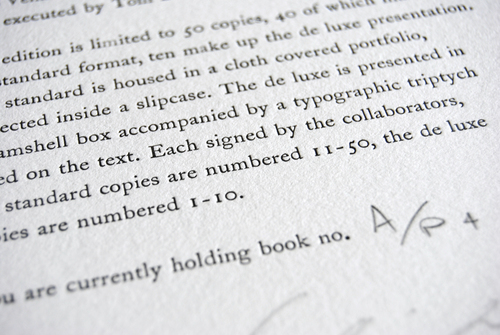 executed by Tom
edition is limited to 50 copies, 40 of which
standard format, ten make up the de luxe presentation.
standard is housed in a cloth covered portfolio,
ected inside a slipcase. The de luxe is presented in
amshell box accompanied by a typographic triptych
ed on the text. Each signed by the collaborators,
standard copies are numbered 11-50, the de luxe
ies are numbered 1-10.
u are currently holding book no. A/P 4